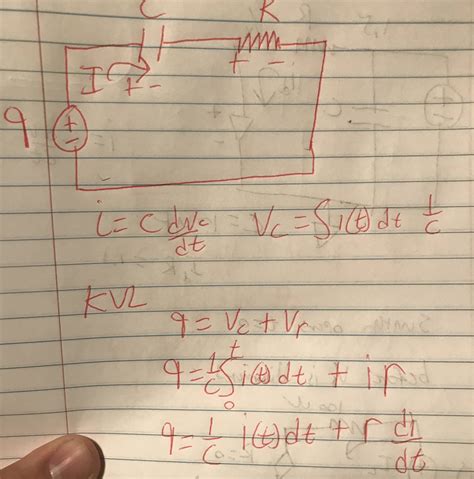 C R
I + - + -
q + -
i = C dVc/dt Vc = ∫ i(t) dt 1/C
KVL
q = Vc + Vr
q = 1/C ∫₀ᵗ i(t) dt + ir
q = 1/C i(t) dt + r di/dt